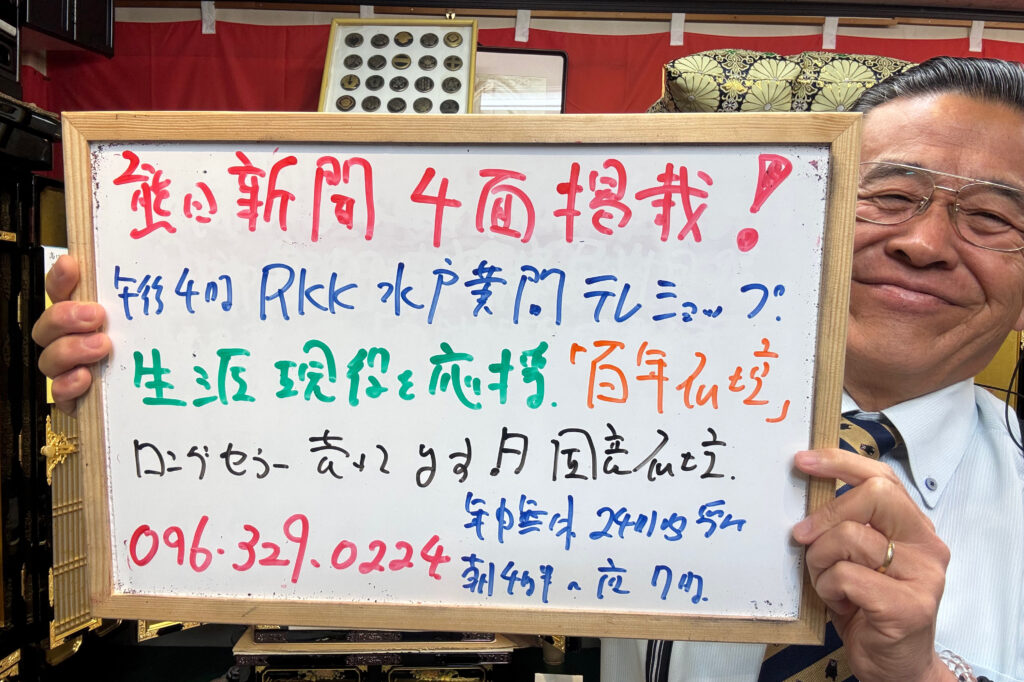 熊日新聞4面掲載!
午后4時 RKK 水戸黄門 テレショップ.
生涯現役を応援.「百年仏壇」
ロングセラー 売れてます 月 国産仏壇.
096.329.0224
年中無休 24時間
朝4時半〜夜7時.